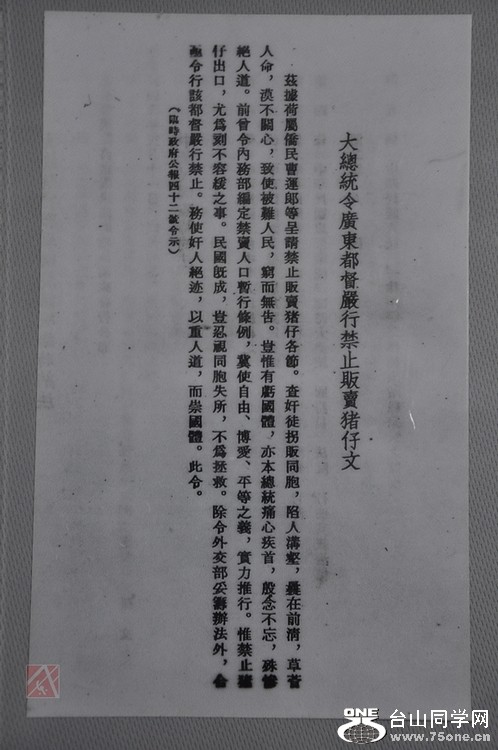 大總統令廣東都督嚴行禁止販賣猪仔文
茲據荷屬僑民曹運郎等呈請禁止販賣猪仔各節。查奸徒拐販同胞，陷人溝壑，曩在前清，草菅
人命，漠不關心，致使被難人民，窮而無告。豈惟有虧國體，亦本總統痛心疾首，殷念不忘，殊慘
絕人道。前曾令內務部編定禁賣人口暫行條例，冀使自由、博愛、平等之義，實力推行。惟禁止猪
仔出口，尤爲刻不容緩之事。民國既成，豈忍視同胞失所，不爲拯救。除令外交部妥籌辦法外，合
亟令行該都督嚴行禁止。務使奸人絕迹，以重人道，而崇國體。此令。
（臨時政府公報四十二號令示）
ONE 台山同学网
www.75one.cn